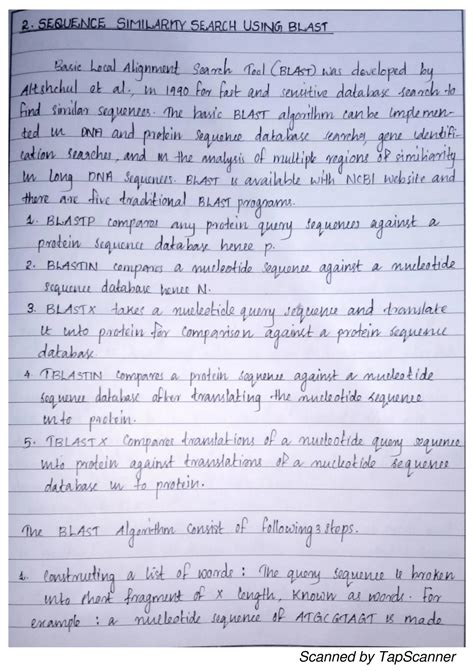 2. SEQUENCE SIMILARITY SEARCH USING BLAST
Basic Local Alignment Search Tool (BLAST) was developed by
Altshchul et al., in 1990 for fast and sensitive database search to
find similar sequences. The basic BLAST algorithm can be implemen-
ted in DNA and protein sequence database searches, gene identifi-
cation searches, and in the analysis of multiple regions of similiarity
in long DNA sequences. BLAST is available with NCBI website and
there are five traditional BLAST programs.
1. BLASTP compares any protein query sequences against a
protein sequence database hence p.
2. BLASTIN compares a nucleotide sequence against a nucleotide
sequence database hence N.
3. BLASTX takes a nucleotide query sequence and translate
it into protein for comparison against a protein sequence
database
4. TBLASTIN compares a protein sequence against a nucleotide
sequence database after translating the nucleotide sequence
into protein.
5. TBLASTX Compares translations of a nucleotide query sequence
into protein against translations of a nucleotide sequence
database in to protein.
The BLAST Algorithm consist of following 3 steps.
1. Constructing a list of words : The query sequence is broken
into short fragment of X length, known as words. For
example : a nucleotide sequence of ATGCGTAGT is made
Scanned by TapScanner